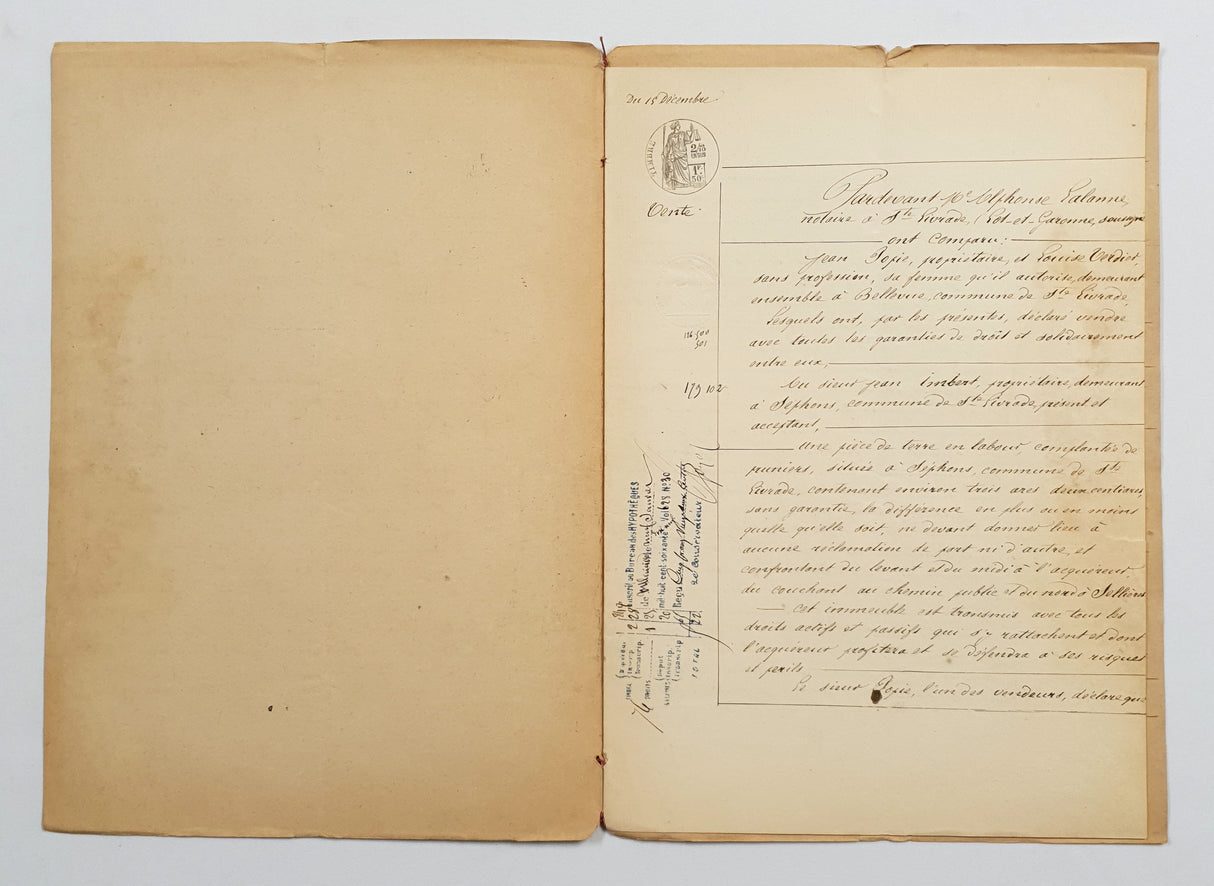 Du 15 Décembre
TIMBRE
2/10
1F.
50C
Vente
116.500
501
179 102
Transcrit au Bureau des HYPOTHÈQUES
de
mil-huit-cent-soixante Vol 628 N° 30
Reçu
Le Conservateur
TOTAL
Pardevant Me Alphonse Lalanne,
notaire à Ste Livrade, (Lot-et-Garonne, soussigné
ont comparu:
Jean Popie, propriétaire, et Louise Verdier,
sans profession, sa femme qu'il autorise, demeurant
ensemble à Bellevue, commune de Ste Livrade,
Lesquels ont, par les présentes, déclaré vendre
avec toutes les garanties de droit et solidairement
entre eux,
Au sieur Jean Imbert, propriétaire, demeurant
à Séphons, commune de Ste Livrade, présent et
acceptant,
Une pièce de terre en labour, complantée de
pruniers, située à Séphons, commune de Ste
Livrade, contenant environ trois ares deux centiares,
sans garantie, la différence en plus ou en moins
quelle qu'elle soit, ne devant donner lieu à
aucune réclamation de part ni d'autre, et
confrontant du levant et du midi à l'acquéreur,
du couchant au chemin public et du nord à Sellières
Cet immeuble est transmis avec tous les
droits actifs et passifs qui s'y rattachent et dont
l'acquéreur profitera et se défendra à ses risques
et périls
Le sieur Popie, l'un des vendeurs, déclare que